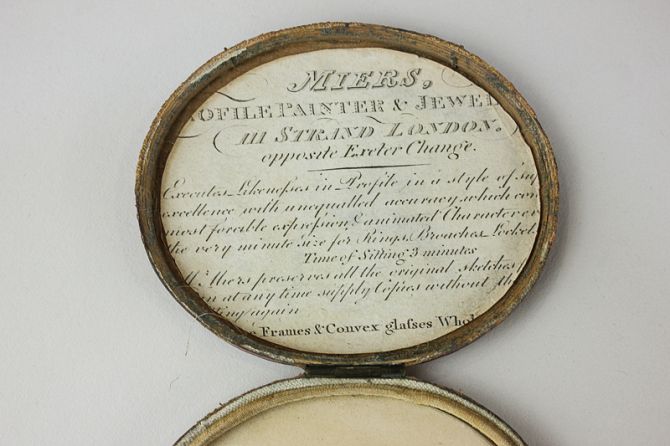 MIERS,
OFILE PAINTER & JEWEL
111 STRAND LONDON,
opposite Exeter Change.
Executes Likenesses in Profile in a style of su
excellence with unequalled accuracy, which con
most forcible expression & animated Character ev
the very minute size for Rings, Broaches, Locket
Time of Sitting 3 minutes
Mr. Miers preserves all the original Sketches
n at any time supply Copies without the
ing again
Frames & Convex glasses Whol